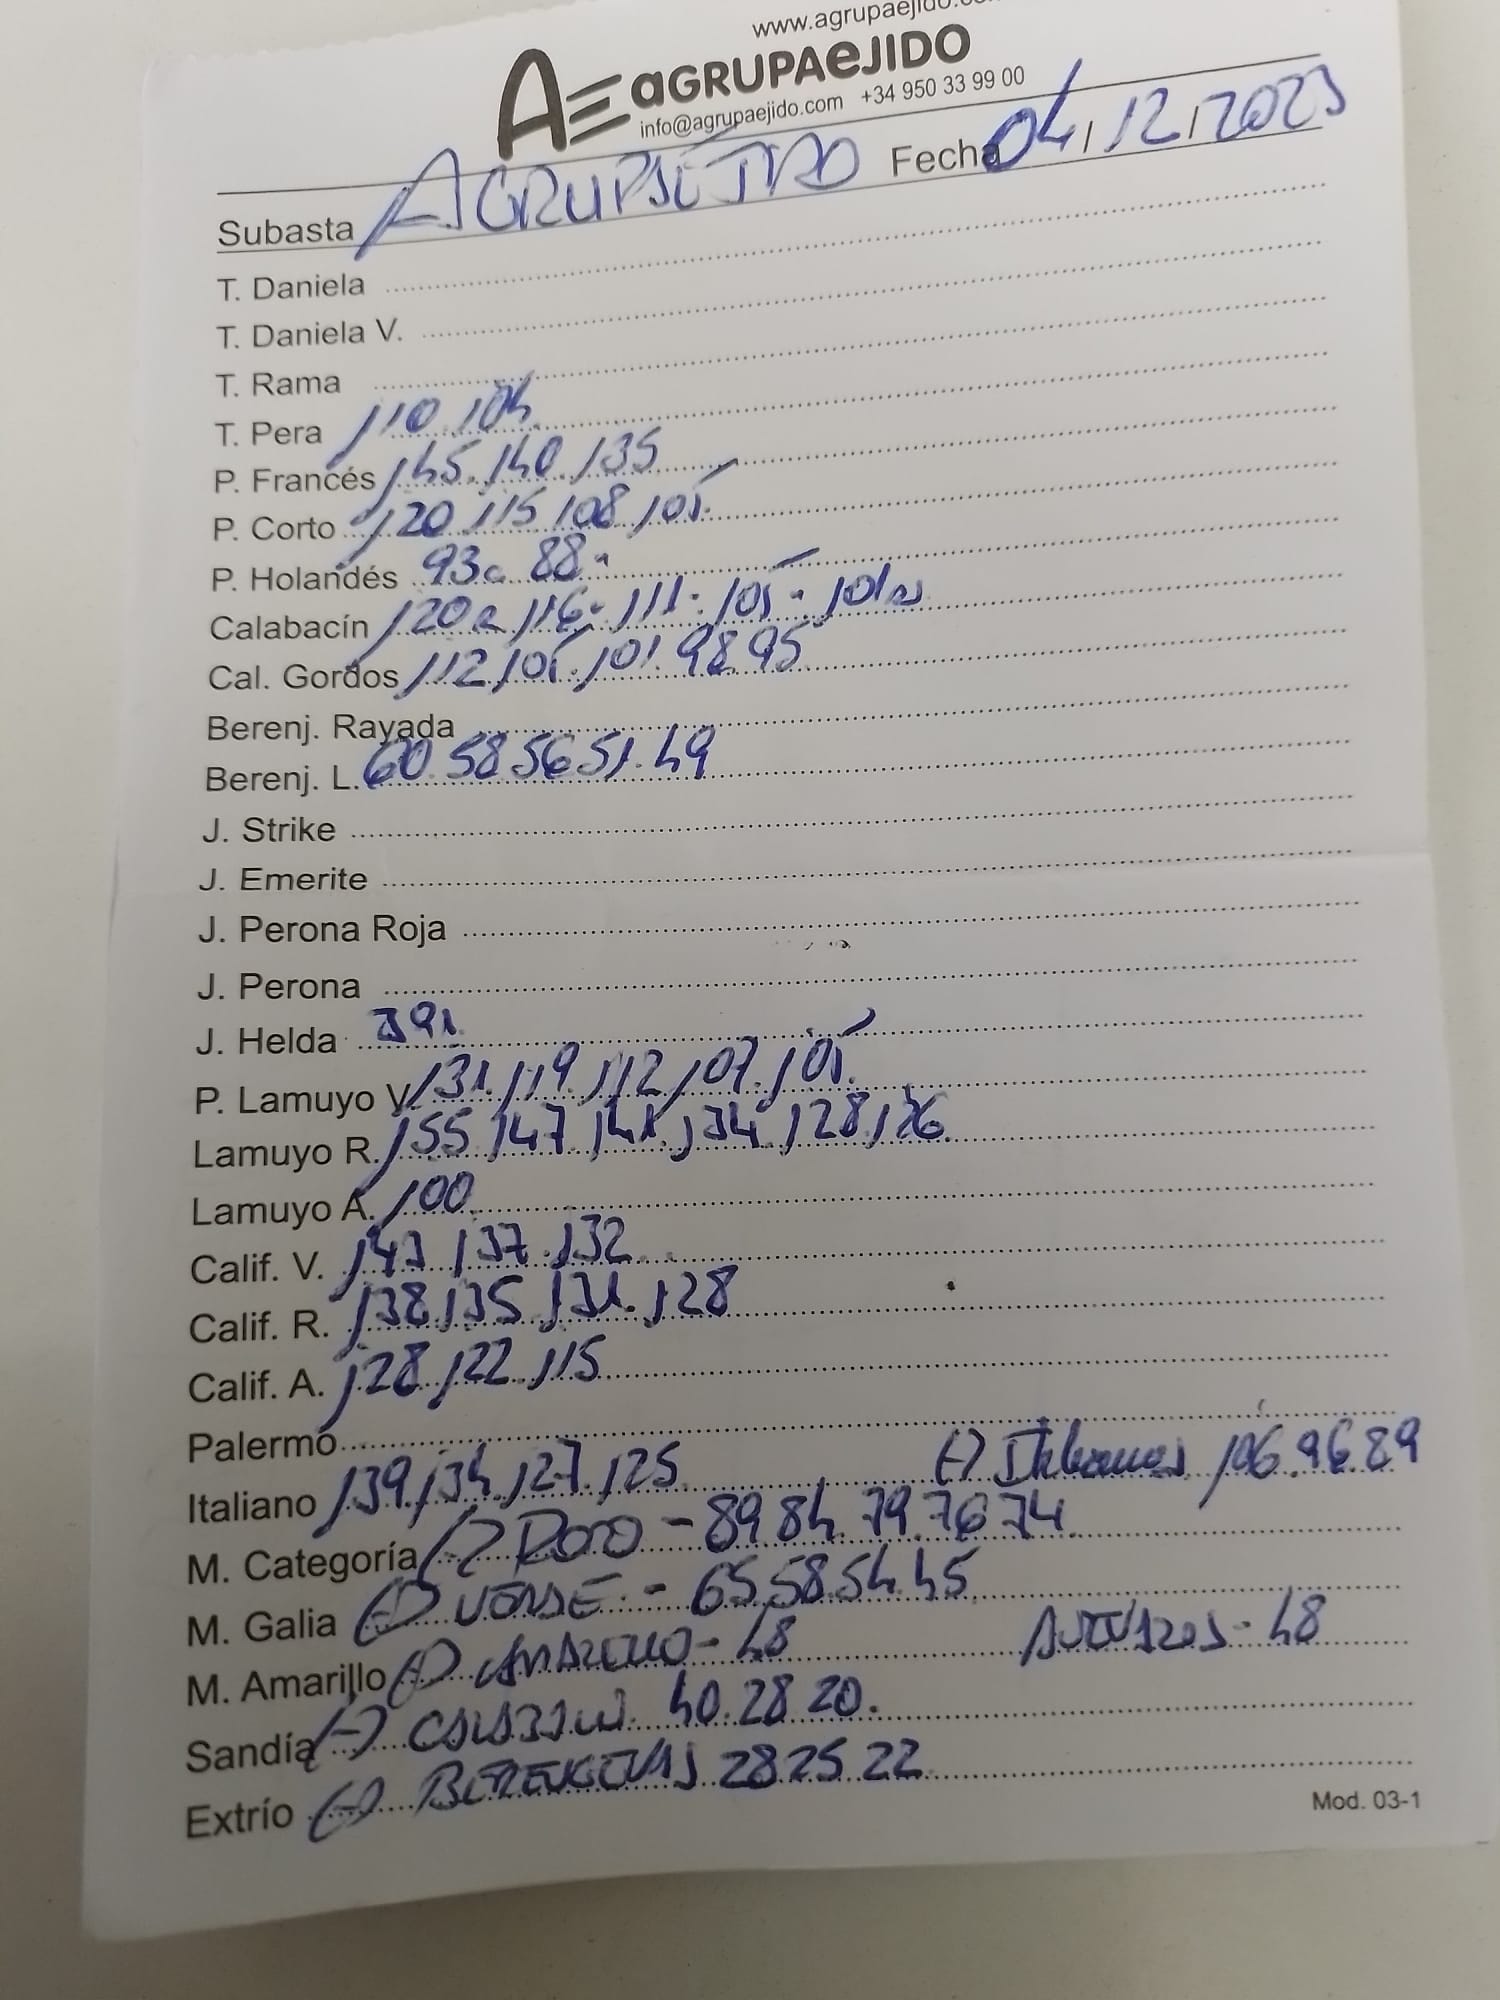 www.agrupaejido.com
AE aGRUPAeJIDO
info@agrupaejido.com +34 950 33 99 00
Subasta AGRUPAEJIDO Fecha 04/12/2023
T. Daniela
T. Daniela V.
T. Rama
T. Pera 110.104
P. Francés 145.140.135
P. Corto 120.115.108.105.
P. Holandés 93 88
Calabacín 120 116-111-105-101
Cal. Gordos 112.105.101.98.95
Berenj. Rayada
Berenj. L. 60.58 56 51.49
J. Strike
J. Emerite
J. Perona Roja
J. Perona
J. Helda 391
P. Lamuyo V. 131.119.112.107.105.
Lamuyo R. 155.147.141.134.128.126.
Lamuyo A. 100
Calif. V. 143.137.132
Calif. R. 138.135.131.128
Calif. A. 128.122.115
Palermo
Italiano 139.134.127.125 (-) Italianos 106.96.89
M. Categoría (-) ROJO - 89 84.79.76 74
M. Galia (-) VERDE - 65 58 54.45
M. Amarillo (-) AMARILLO - 48 ASURADOS - 48
Sandía (-) CALABACIN. 40.28 20.
Extrío (-) BERENGENAS 28 25 22
Mod. 03-1